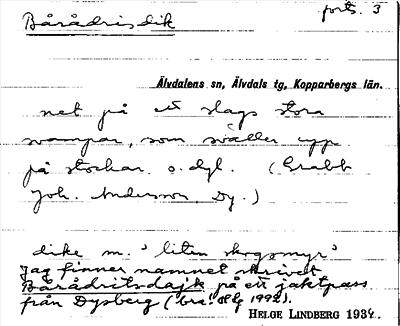 Båråd​risdik
forts. 3
Älvdalens sn, Älvdals tg, Kopparbergs län.
net på ett slags stora
svampar, som sväller upp
på stockar o. dyl. (Grabb
Joh. Andersson, Dy.)
dike m. 'liten skogsmyr'
Jag finner namnet skrivet
Bårådritsdajk på ett jaktpass
från Dysberg (
HELGE LINDBERG 1934.